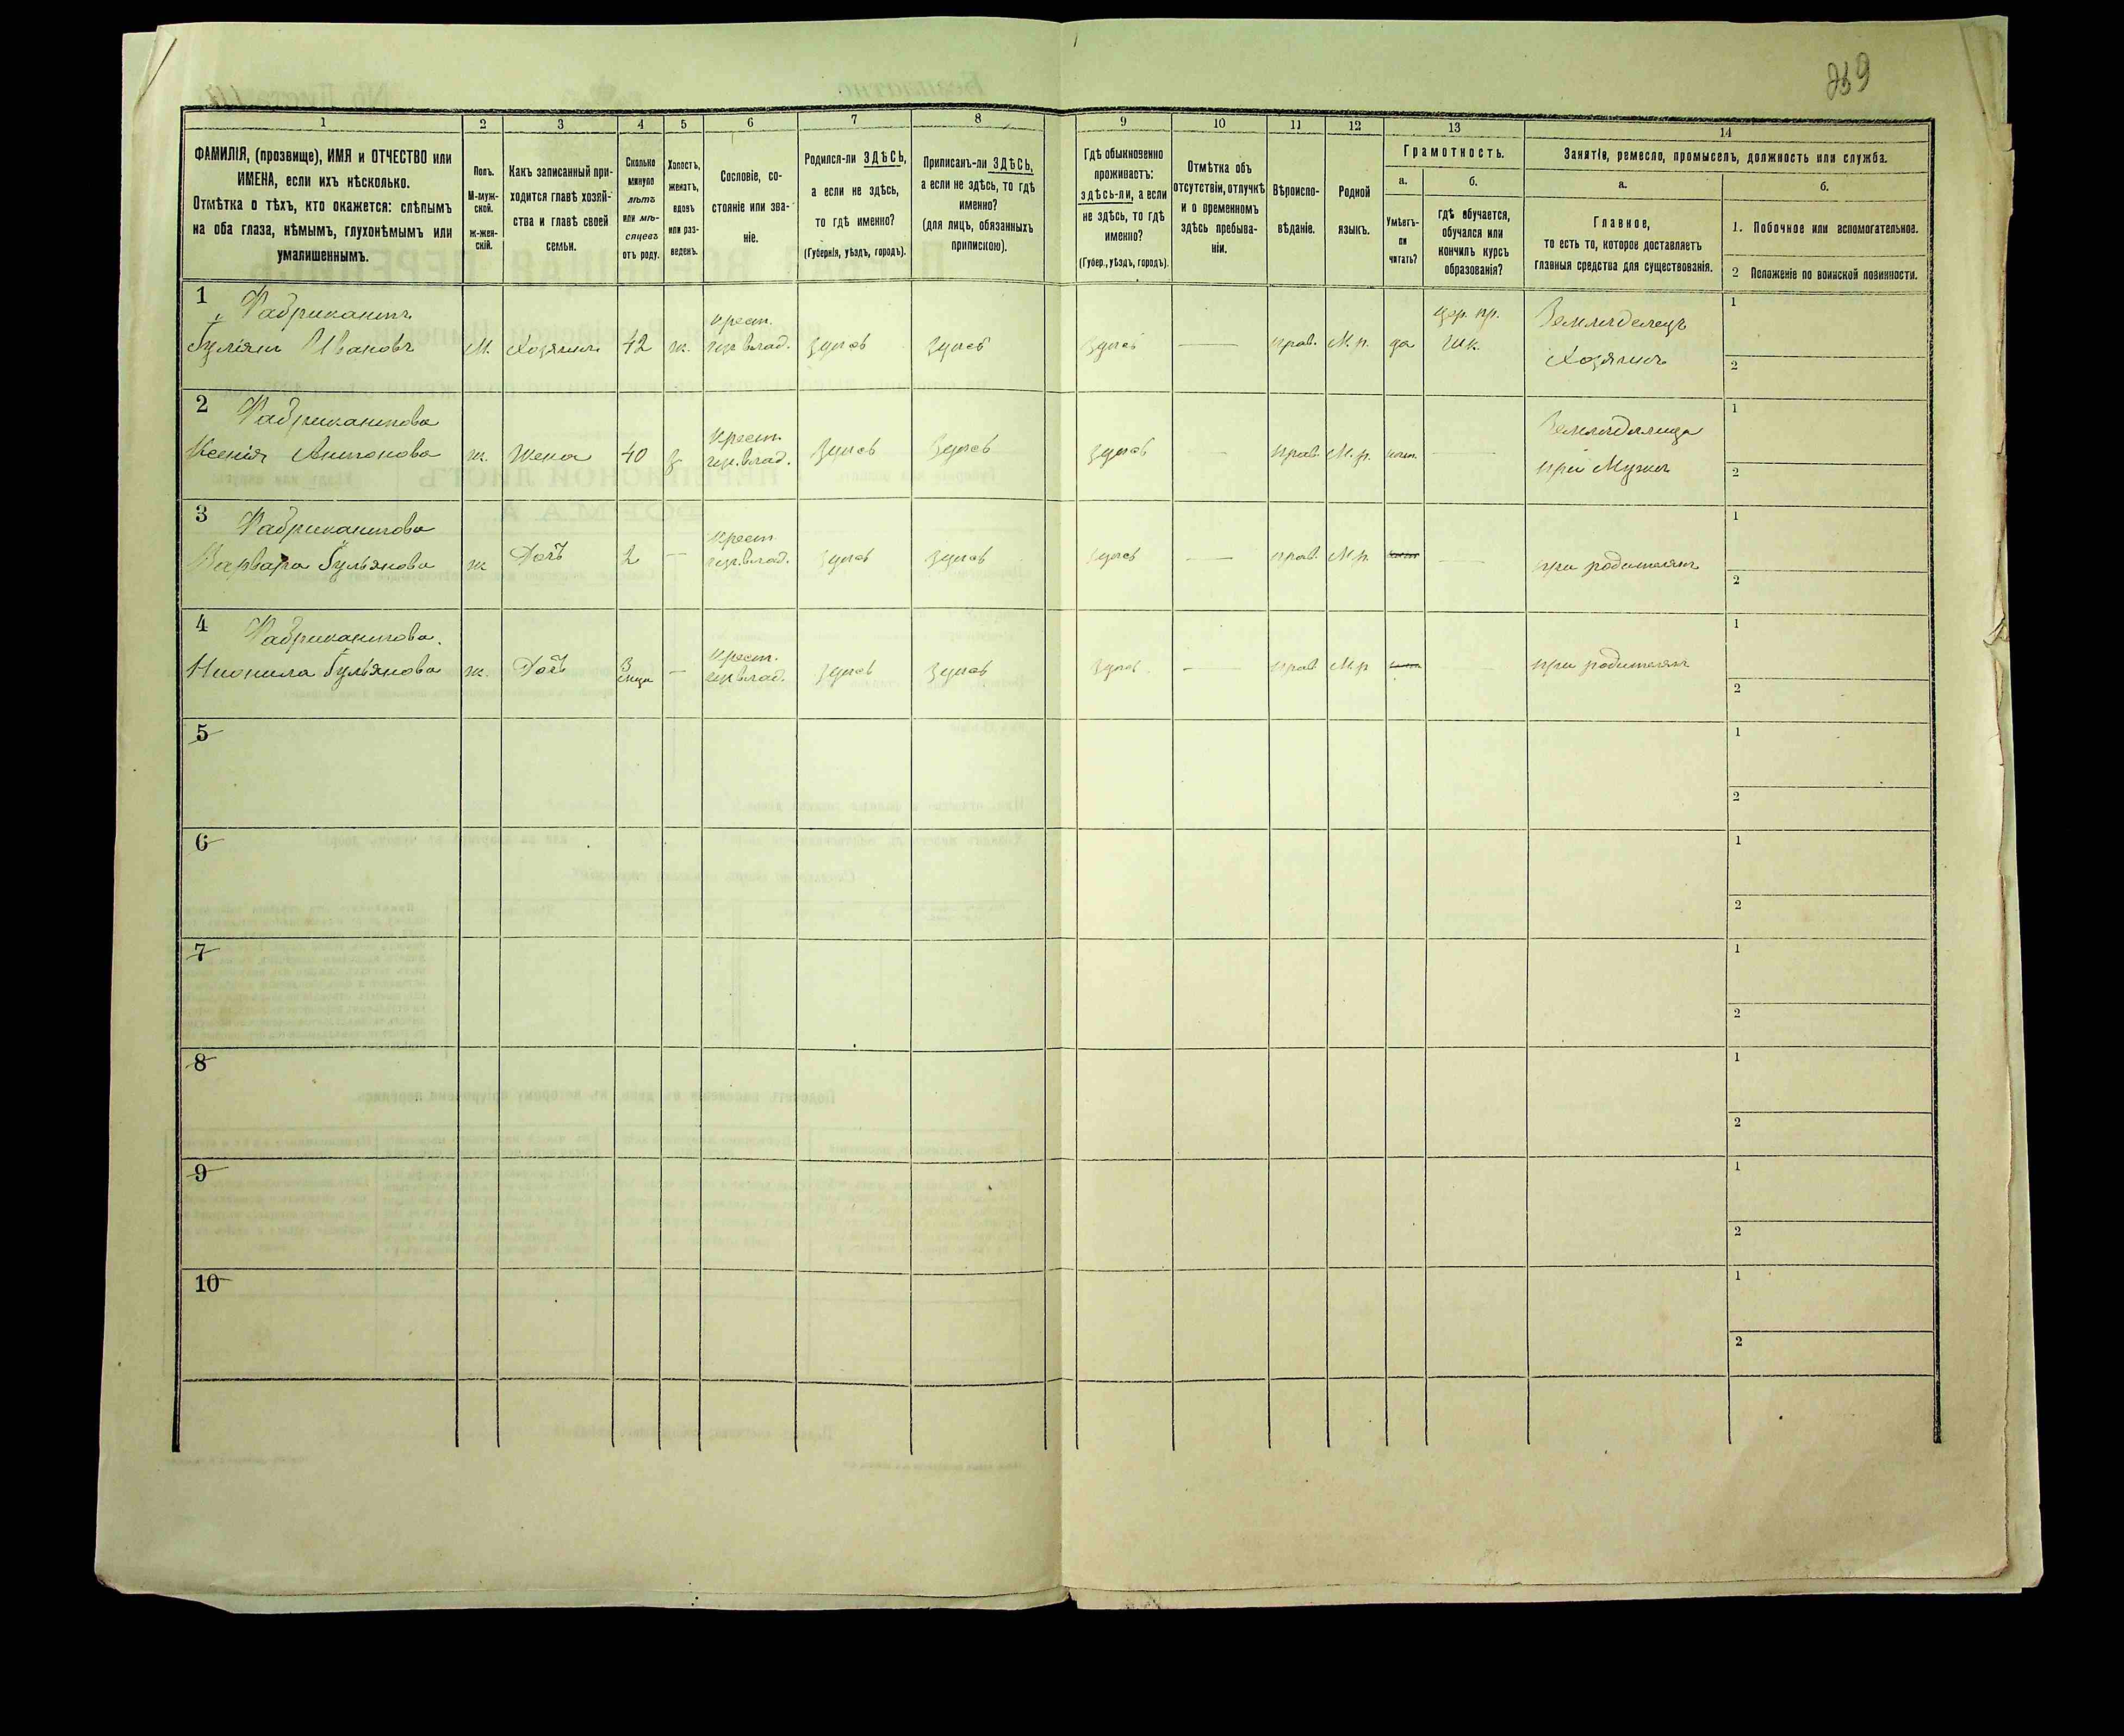 239
1 2 3 4 5 6 7 8 9 10 11 12 13 14
ФАМИЛІЯ, (прозвище), ИМЯ и ОТЧЕСТВО или
ИМЕНА, если ихъ нѣсколько.
Отмѣтка о тѣхъ, кто окажется: слѣпымъ
на оба глаза, нѣмымъ, глухонѣмымъ или
умалишеннымъ.
Полъ.
М-муж-
ской.
Ж-жен-
скій.
Какъ записанный при-
ходится главѣ хозяй-
ства и главѣ своей
семьи.
Сколько
минуло
лѣтъ
или мѣ-
сяцевъ
отъ роду.
Холостъ,
женатъ,
вдовъ
или раз-
веденъ.
Сословіе, со-
стояніе или зва-
ніе.
Родился-ли ЗДѢСЬ,
а если не здѣсь,
то гдѣ именно?
(Губернія, уѣздъ, городъ).
Приписанъ-ли ЗДѢСЬ,
а если не здѣсь, то гдѣ
именно?
(для лицъ, обязанныхъ
припискою).
Гдѣ обыкновенно
проживаетъ:
здѣсь-ли, а если
не здѣсь, то гдѣ
именно?
(Губер., уѣздъ, городъ).
Отмѣтка объ
отсутствіи, отлучкѣ
и о временномъ
здѣсь пребыва-
ніи.
Вѣроиспо-
вѣданіе.
Родной
языкъ.
Грамотность.
а.
Умѣетъ-
ли
читать?
б.
гдѣ обучается,
обучался или
кончилъ курсъ
образованія?
Занятіе, ремесло, промыселъ, должность или служба.
а.
Главное,
то есть то, которое доставляетъ
главныя средства для существованія.
б.
1. Побочное или вспомогательное.
2 Положеніе по воинской повинности.
1 Фабрикантъ крест. цер. пр. Земледелецъ 1
Іуліянъ Ивановъ М. Хозяинъ 42 ж. влад. Здѣсь Здѣсь Здѣсь — прав. М. р. да шк. Хозяинъ 2
2 Фабрикантова Крест. 1
Ксенія Антонова ж. Жена 40 з. влад. Здѣсь Здѣсь Здѣсь — прав. М. р. нѣт. — при Мужѣ 2
3 Фабрикантова Крест. 1
Варвара Гульянова ж Дочь 2 — влад. Здѣсь Здѣсь Здѣсь — прав. М. р. — при родителяхъ 2
4 Фабрикантова Крест. 1
Гульянова ж. Дочь 3 — влад. Здѣсь Здѣсь Здѣсь — прав М. р — при родителяхъ 2
5 1
2
6 1
2
7 1
2
8 1
2
9 1
2
10 1
2